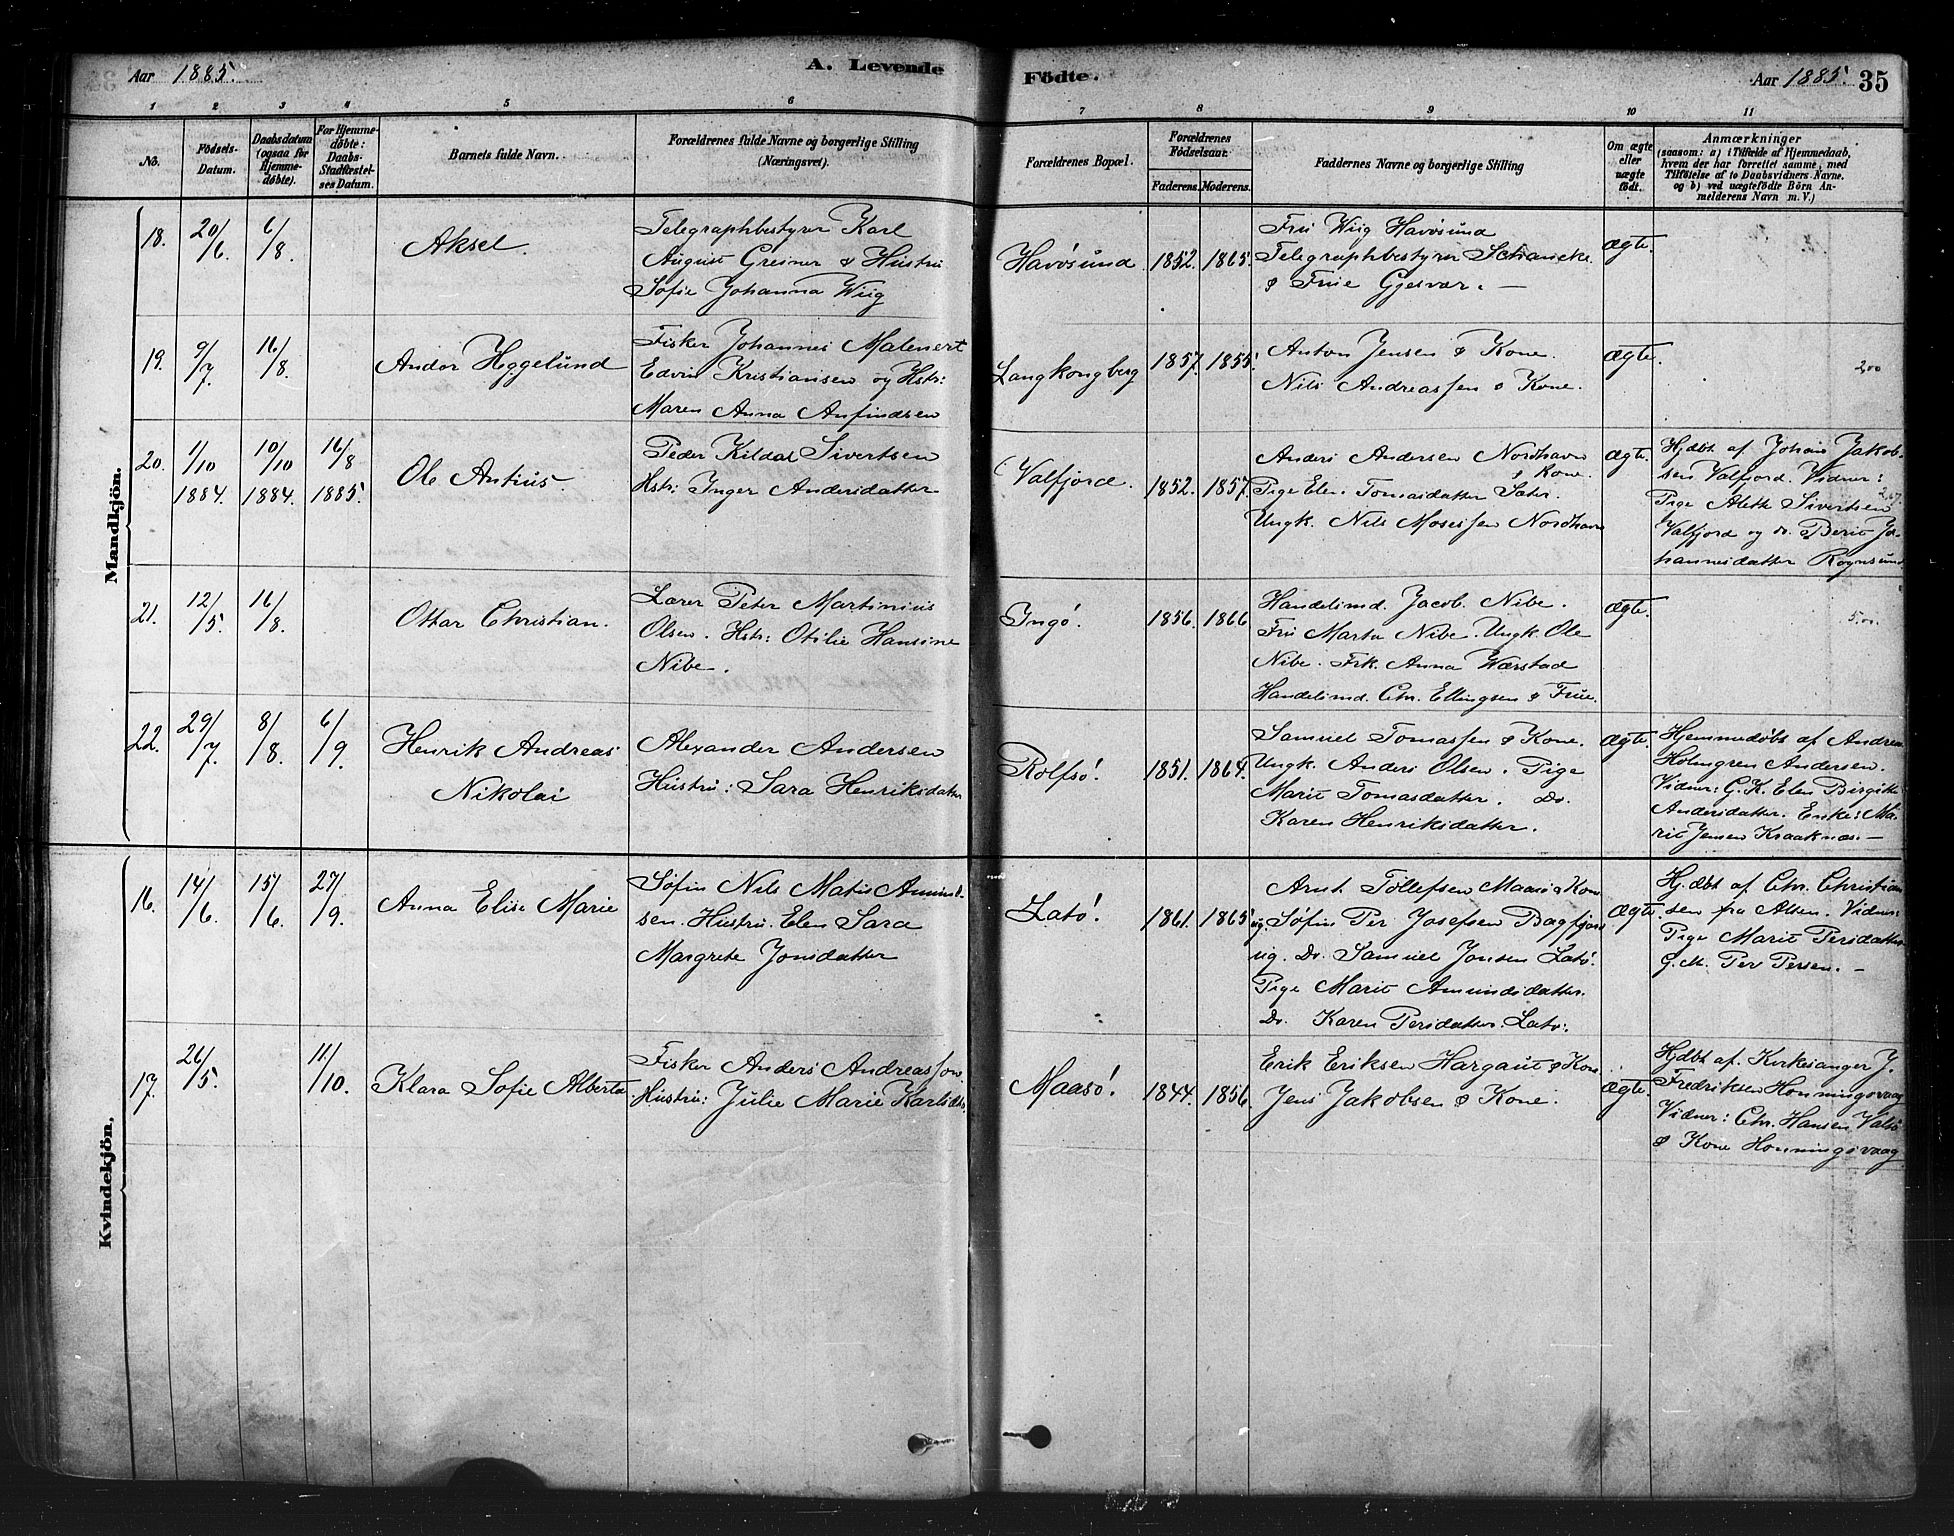 Aar 1885.
A. Levende
Födte.
Aar 1885.
35
1 2 3 4 5 6 7 8 9 10 11
No.
Födsels-
Datum.
Daabsdatum
(ogsaa for
Hjemme-
døbte).
For Hjemme-
døbte:
Daabs-
Stadfæstel-
ses Datum.
Barnets fulde Navn.
Forældrenes fulde Navne og borgerlige Stilling
(Næringsvei).
Forældrenes Bopæl.
Forældrenes
Födselsaar.
Faderens. Moderens.
Faddernes Navne og borgerlige Stilling
Om ægte
eller
uægte
født.
Anmærkninger
(saasom: a) i Tilfælde af Hjemmedaab,
hvem der har forrettet samme, med
Tilføielse af to Daabsvidners Navne.
og b) ved uægtefødte Börn An-
melderens Navn m. V.)
Mandkjön.
18.
20/6
6/8.
Aksel.
Telegraphbestyrer Karl
August Greiner & Hustru
Sofie Johanna Wiig
Havösund
1852.
1865.
Frú Wiig Havösund
Telegraphbestyrer Schancke
& Frue Gjesvær. —
Ægte.
19.
9/7
16/8.
Andor Heggelund
Fisker Johannes Malenert
Edvin Kristiansen og Hstr:
Maren Anna Anfindsen
Langkongberg
1857.
1855.
Anton Jensen & Kone.
Nils Andreassen & Kone.
Ægte.
2,00
20.
1/10
1884.
10/10
1884.
16/8
1885.
Ole Antius.
Peder Kildal Sivertsen
Hstr: Inger Andersdatter
Valfjord.
1852.
1857.
Anders Andersen Nordhavn
& Kone.
Pige Elen Tomasdatter Sater.
Ungk. Nils Mosessen Nordhavn
Ægte.
Hjdbt af Johans Jakob-
sen Valfjord. Vidner:
Pige Aleth Sivertsen
Valfjord og do. Berit Jo-
hannesdatter Rognsund
21.
12/5.
16/8.
Ottar Christian.
Lærer Peter Martinius
Olsen. Hstr: Otilie Hansine
Nibe.
Ingö.
1856.
1866
Handelsmd. Jacob Nibe.
Fru Marta Nibe. Ungk. Ole
Nibe. Frk. Anna Wærstad
Handelsmd. Chr. Ellingsen & Frue.
Ægte.
5,00.
22.
29/7.
8/8.
6/9.
Henrik Andreas
Nikolai
Alexander Andersen
Hustru: Sara Henriksdatter
Rolfsö.
1851.
1864.
Samuel Tomassen & Kone.
Ungk. Anders Olsen. Pige
Marit Tomasdatter. Do.
Karen Henriksdatter.
Ægte.
Hjemmedöbt af Andreas
Holmgren Andersen.
Vidner: G. K. Elen Birgitte
Andersdatter. Enke: Ma-
rit Jensen Kraaknæs. —
Kvindekjön.
16.
14/6.
15/6.
27/9.
Anna Elise Marie
Söfin Nils Matis Amund-
sen. Hustru. Elen Sara
Margrete Jonsdatter
Latö.
1861.
1865
Arnt Tollefsen Maasö & Kone
ug. Søfin Per Josefsen Bagfjord
ug. Do. Samuel Jonsen Latö.
Pige Marit Amundsdatter.
Do. Karen Persdatter. Latö.
Ægte.
Hjdbt af Chr. Christian
sen fra Alten. Vidner:
Pige Marit Persdatter
G. M. Per Persen. —
17.
26/5.
11/10.
Klara Sofie Alberta.
Fisker Anders Andreassen.
Hustru: Julie Marie Karlsdtr.
Maasö.
1844.
1856.
Erik Eriksen Hargaut & Kone
Jens Jakobsen & Kone.
Ægte.
Hjdbt af. Kirkesanger J.
Fredriksen Honningsvaag
Vidner: Chr. Hansen Valsö
& Kone Honningsvaag